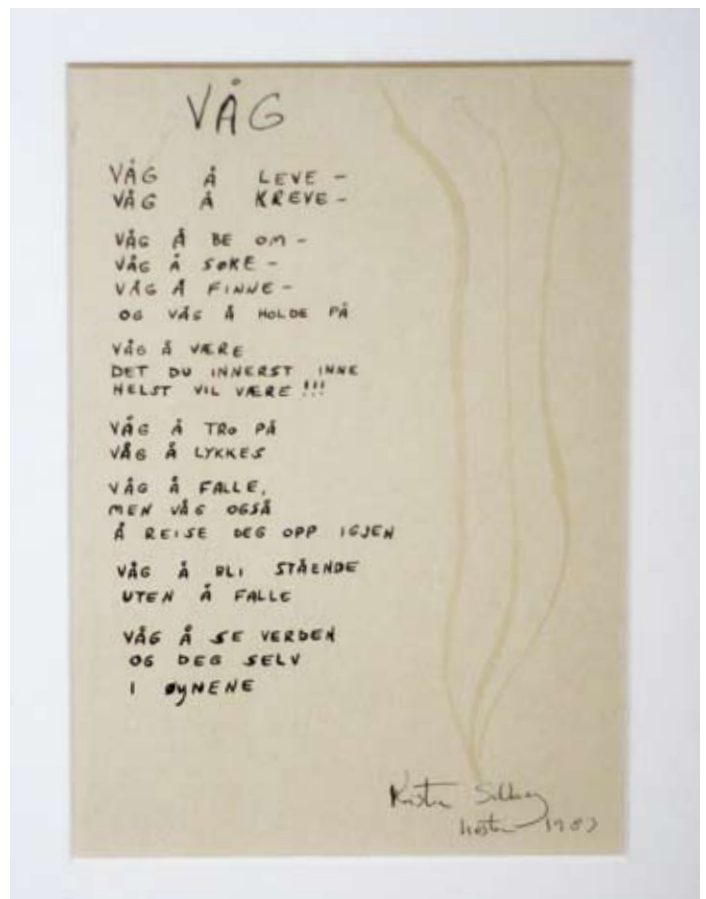 VÅG
VÅG Å LEVE -
VÅG Å KREVE -
VÅG Å BE OM -
VÅG Å SØKE -
VÅG Å FINNE -
OG VÅG Å HOLDE PÅ
VÅG Å VÆRE
DET DU INNERST INNE
HELST VIL VÆRE!!!
VÅG Å TRO PÅ
VÅG Å LYKKES
VÅG Å FALLE,
MEN VÅG OGSÅ
Å REISE DEG OPP IGJEN
VÅG Å BLI STÅENDE
UTEN Å FALLE
VÅG Å SE VERDEN
OG DEG SELV
I ØYNENE